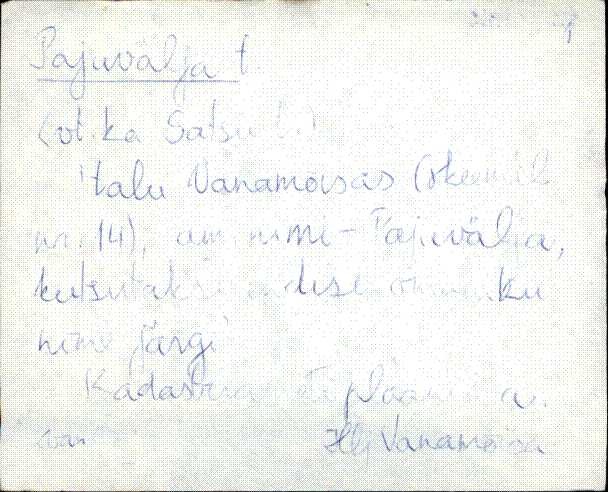 Pajuvälja t.
(vt. ka Satsu t.)
talu Vanamõisas (skeemil
nr. 14), am. nimi - Pajuvälja,
kutsutakse endise omaniku
nime järgi
Kadastri
Hlj Vanamõisa